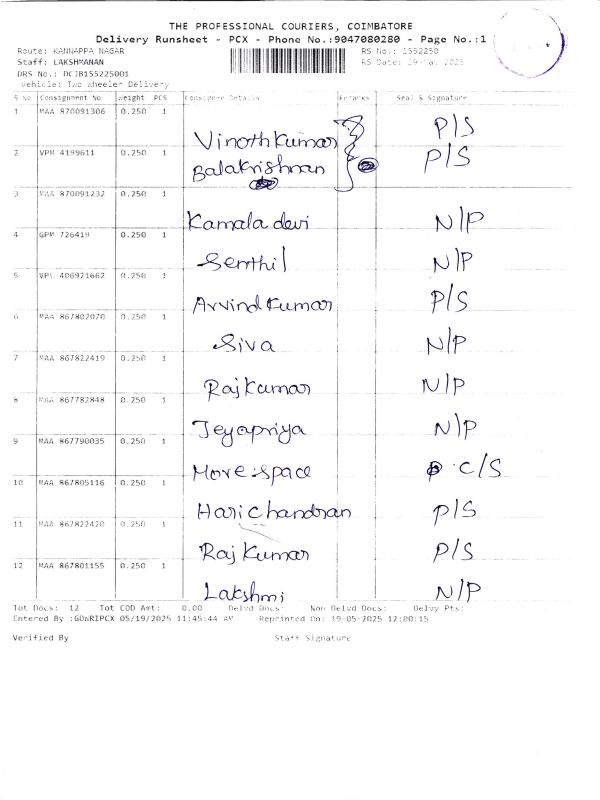 THE PROFESSIONAL COURIERS, COIMBATORE
Delivery Runsheet - PCX - Phone No.:9047080280 - Page No.:1
Route: KANNAPPA NAGAR RS No.: 1552250
Staff: LAKSHMANAN RS Date: 19-May-2025
DRS No.: DCJB155225001
Vehicle: Two Wheeler Delivery
S No Consignment No Weight PCS Consignee Details Remarks Seal & Signature
1 MAA 870091306 0.250 1 Vinoth Kumar P/S
2 VPM 4199611 0.250 1 Balakrishnan P/S
3 MAA 870091232 0.250 1 Kamala devi N/P
4 GPM 726419 0.250 1 Senthil N/P
5 VPL 406921662 0.250 1 Arvind Kumar P/S
6 MAA 867802070 0.250 1 Siva N/P
7 MAA 867822419 0.250 1 Raj Kumar N/P
8 MAA 867782848 0.250 1 Jeyapriya N/P
9 MAA 867790035 0.250 1 More space C/S
10 MAA 867805116 0.250 1 Hari chandran P/S
11 MAA 867822420 0.250 1 Raj Kumar P/S
12 MAA 867801155 0.250 1 Lakshmi N/P
Tot Docs: 12 Tot COD Amt: 0.00 Delvd Docs: Non Delvd Docs: Delvy Pts:
Entered By :GOWRIPCX 05/19/2025 11:45:44 AM Reprinted On: 19-05-2025 12:00:15
Verified By Staff Signature